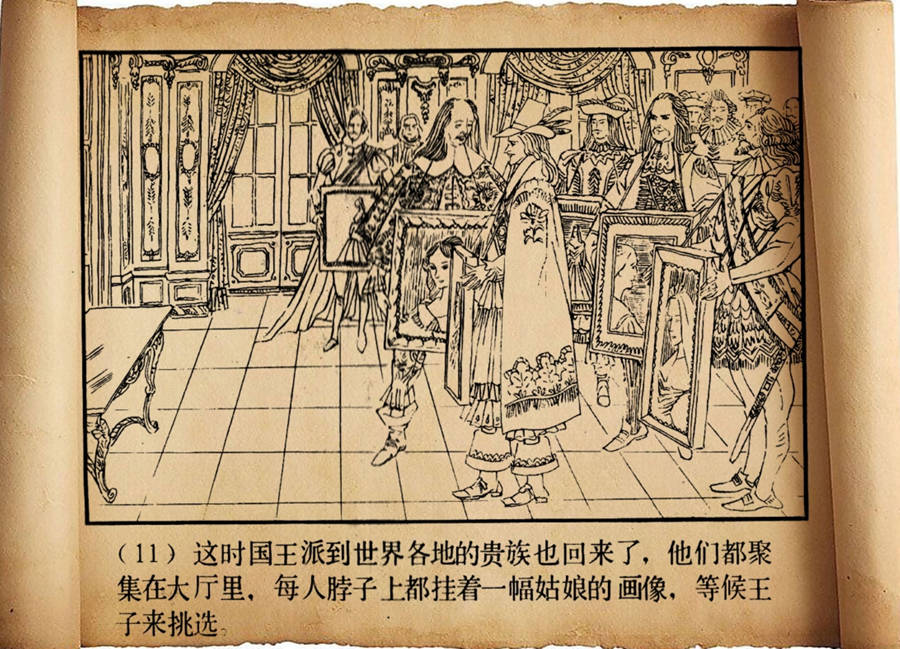 （11）这时国王派到世界各地的贵族也回来了，他们都聚
集在大厅里，每人脖子上都挂着一幅姑娘的画像，等候王
子来挑选。